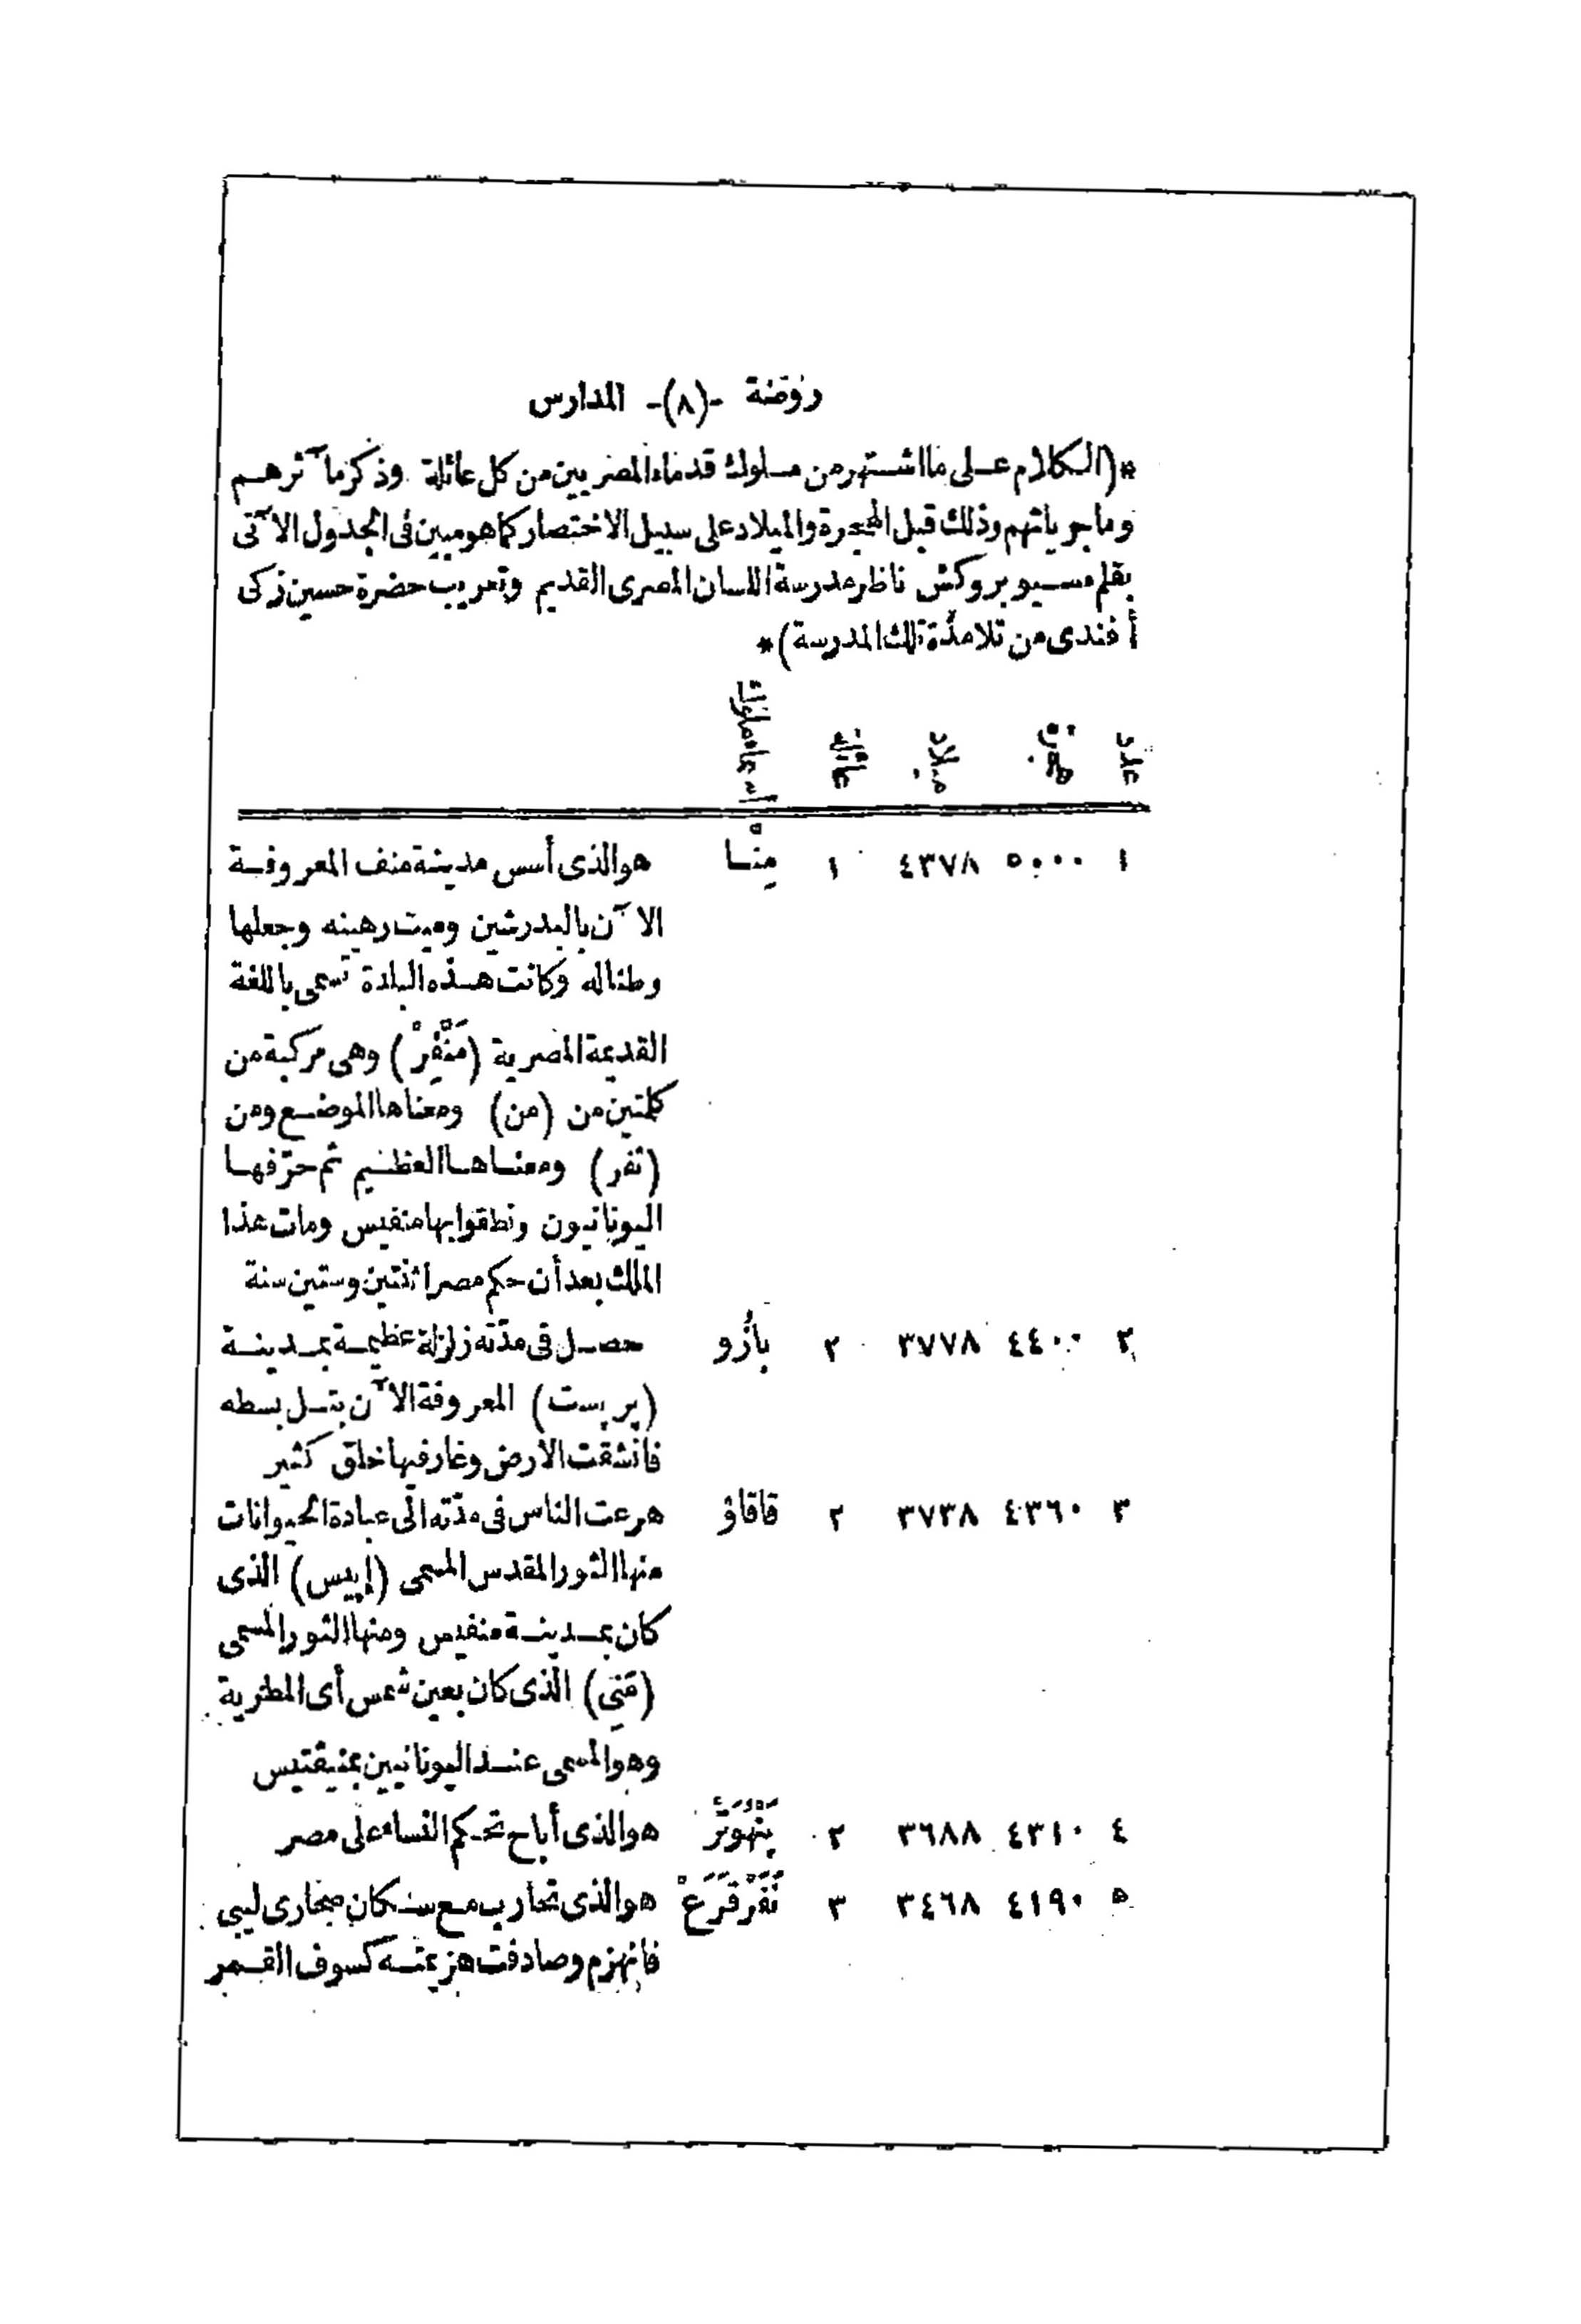 روضة -(٨)- المدارس
*(الكلام على ما اشتهر من ملوك قدماء المصريين من كل عائلة وذكر مآثرهم
وماجرياتهم وذلك قبل الهجرة والميلاد على سبيل الاختصار كما هو مبين فى الجدول الآتى
بقلم مسيو بروكش ناظر مدرسة اللسان المصرى القديم وتعريب حضرة حسين زكى
أفندى من تلامذة تلك المدرسة)*
عدد هجرة ميلاد عائلة أسماء ملوك
١ ٥٠٠٠ ٤٣٧٨ ١ مِنْا هو الذى أسس مدينة منف المعروفة
الآن بالبدرشين وميت رهينه وجعلها
وطنا له وكانت هذه البلدة تسمى باللغة
القديمة المصرية (مَنْفِرْ) وهى مركبة من
كلمتين من (من) ومعناها الموضع ومن
(نفر) ومعناها العظيم ثم حرّفها
اليونانيون ونطقوا بها منفيس ومات هذا
الملك بعد أن حكم مصر اثنتين وستين سنة
٢ ٤٤٠٠ ٣٧٧٨ ٢ بازُو حصل فى مدّته زلزلة عظيمة بمدينة
(پر پست) المعروفة الآن بتل بسطه
فانشقت الارض وغار فيها خلق كثير
٣ ٤٣٦٠ ٣٧٣٨ ٢ قاقاؤ هرعت الناس فى مدّته الى عبادة الحيوانات
منها الثور المقدس المسمى (إپيس) الذى
كان بمدينة منفيس ومنها الثور المسمى
(مَنِى) الذى كان بعين شمس أى المطرية
وهو المسمى عند اليونانيين بمنيقتيس
٤ ٤٣١٠ ٣٦٨٨ ٢ هو الذى أباح تحكم النساء على مصر
٥ ٤١٩٠ ٣٤٦٨ ٣ نَفَرْقَرَعْ هو الذى تحارب مع سكان صحارى ليبى
فانهزم وصادفت هزيمته كسوف القمر